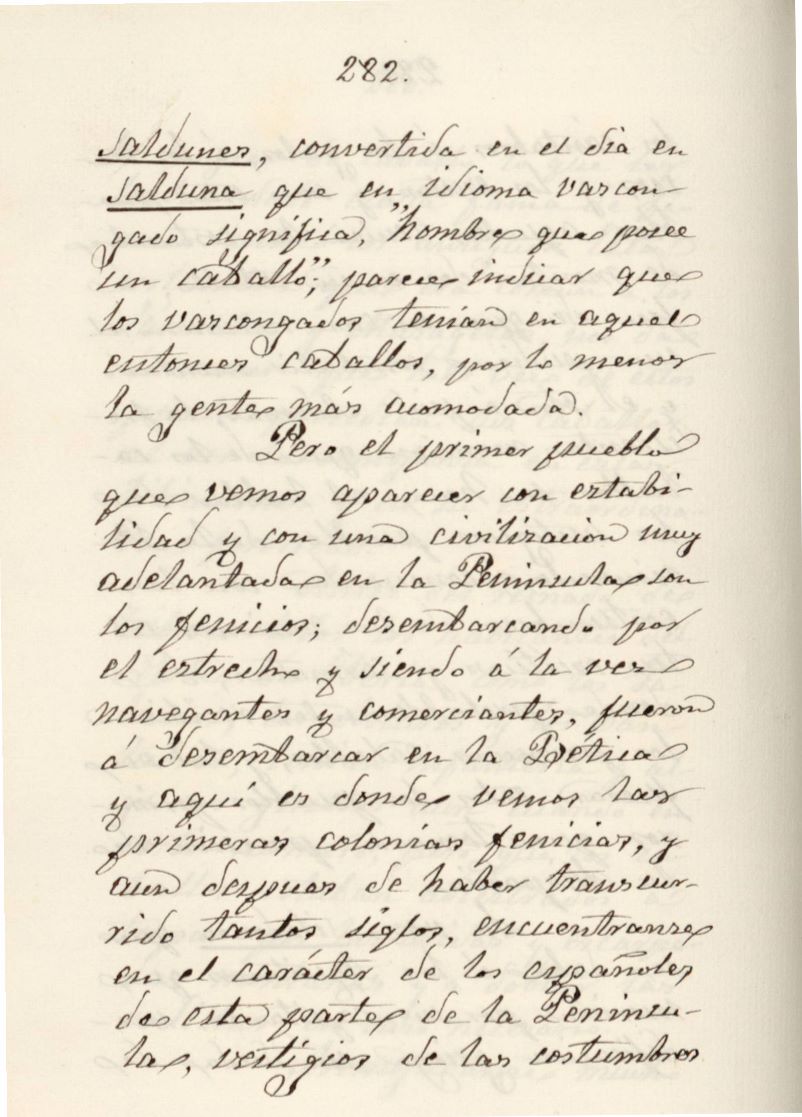 282.
saldunes, convertida en el dia en
salduna que en idioma vascon-
gado significa, "hombre que posee
un caballo"; parece indicar que
los vascongados tenian en aquel
entonces caballos, por lo menos
la gente más acomodada.
Pero el primer pueblo
que vemos aparecer con estabi-
lidad y con una civilizacion muy
adelantada en la Peninsula son
los fenicios; desembarcando por
el estrecho y siendo á la vez
navegantes y comerciantes, fueron
á desembarcar en la Bética
y aquí es donde vemos las
primeras colonias fenicias, y
aun despues de haber transcur-
rido tantos siglos, encuentranse
en el carácter de los españoles
de esta parte de la Peninsu-
la, vestigios de las costumbres